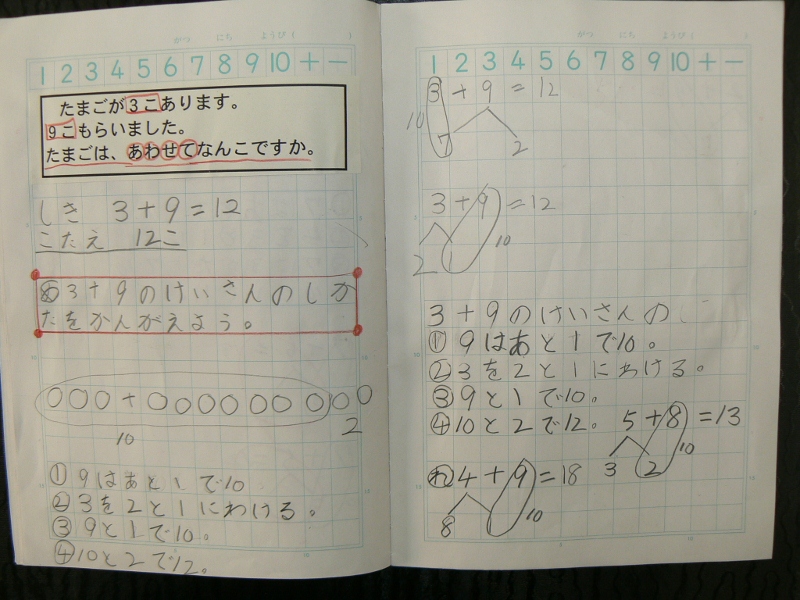 がつ にち ようび( )
1 2 3 4 5 6 7 8 9 10 + −
たまごが3こあります。
9こもらいました。
たまごは、あわせてなんこですか。
しき 3+9=12
こたえ 12こ
め 3+9のけいさんのしか
たをかんがえよう。
○○○+○○○○○○○○○
10 2
① 9はあと1で10
② 3を2と1にわける。
③ 9と1で10。
④ 10と2で12。
がつ にち ようび( )
1 2 3 4 5 6 7 8 9 10 + −
3+9=12
10 7 2
3+9=12
2 1 10
3+9のけいさんの
① 9はあと1で10。
② 3を2と1にわける。
③ 9と1で10。
④ 10と2で12。
5+8=13
3 2 10
れ 4+9=18
8 1 10